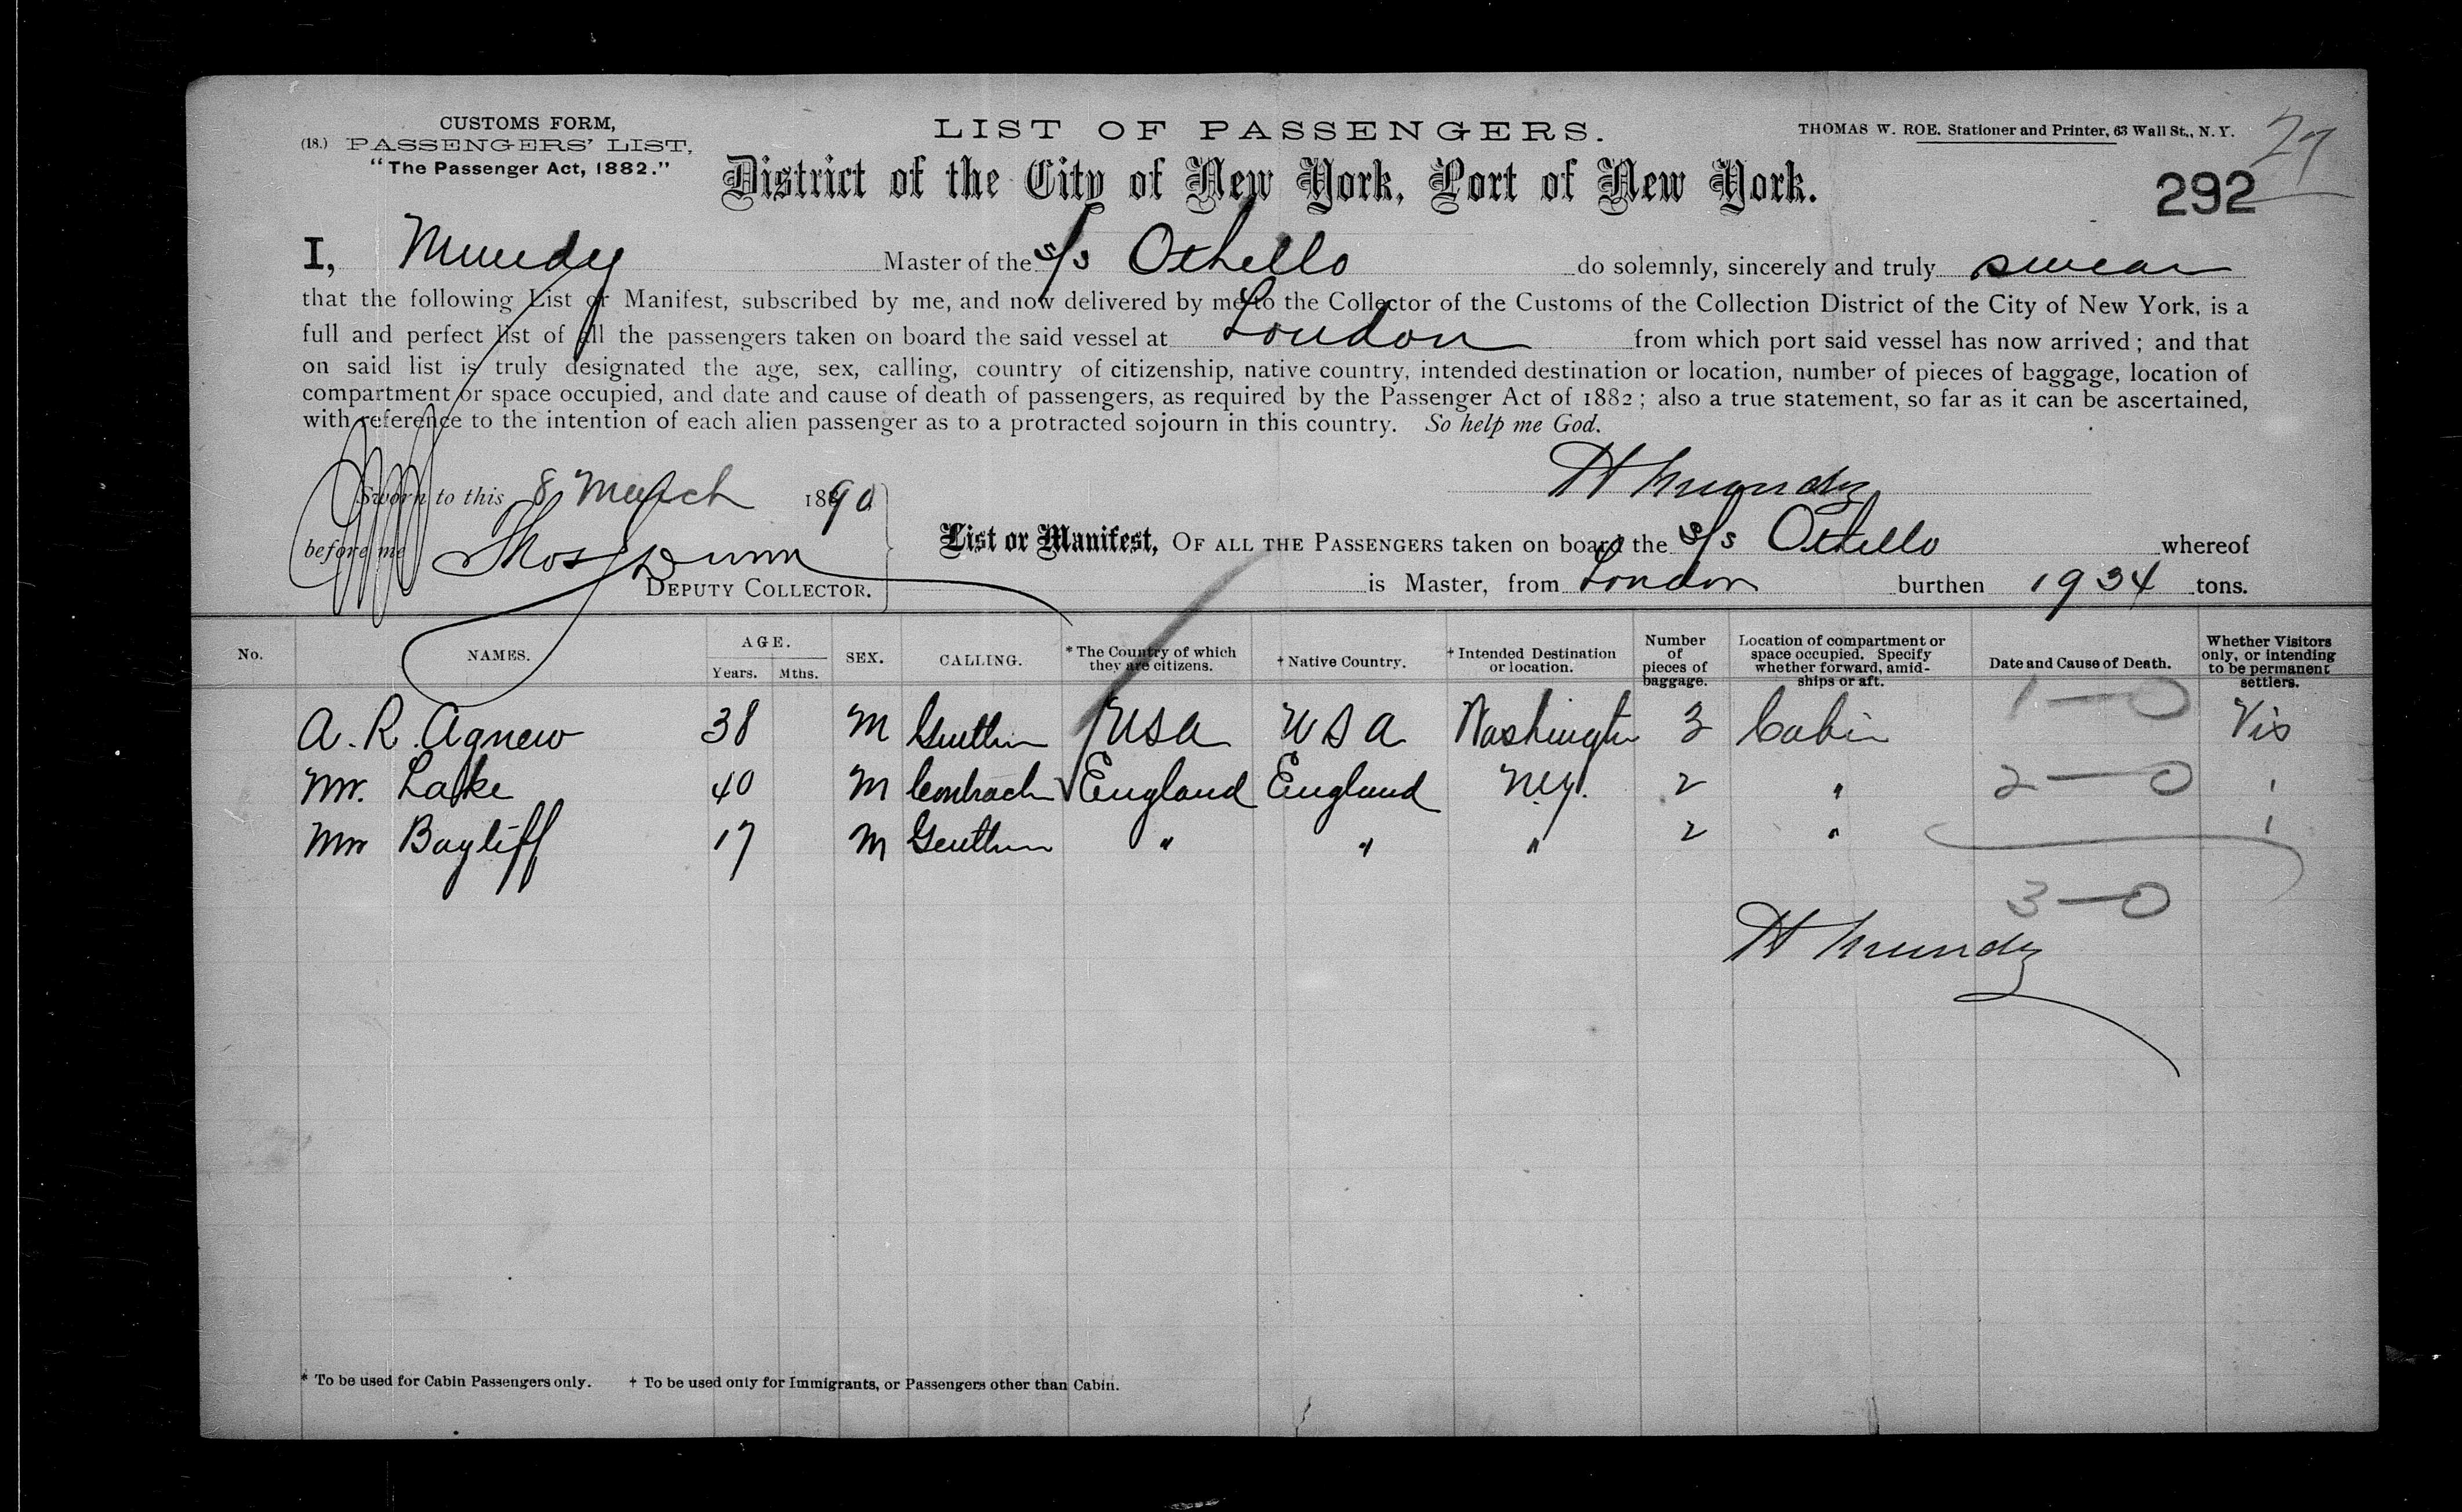 CUSTOMS FORM,
(18.) PASSENGERS' LIST,
"The Passenger Act, 1882."
LIST OF PASSENGERS.
THOMAS W. ROE. Stationer and Printer, 63 Wall St., N. Y.
27
District of the City of New York, Port of New York.
292
I, Mundy Master of the s/s Othello do solemnly, sincerely and truly swear
that the following List or Manifest, subscribed by me, and now delivered by me to the Collector of the Customs of the Collection District of the City of New York, is a
full and perfect list of all the passengers taken on board the said vessel at London from which port said vessel has now arrived; and that
on said list is truly designated the age, sex, calling, country of citizenship, native country, intended destination or location, number of pieces of baggage, location of
compartment or space occupied, and date and cause of death of passengers, as required by the Passenger Act of 1882; also a true statement, so far as it can be ascertained,
with reference to the intention of each alien passenger as to a protracted sojourn in this country. So help me God.
Sworn to this 8 March 1890
H Mundy
before me Thos Dunn
DEPUTY COLLECTOR.
List or Manifest, OF ALL THE PASSENGERS taken on board the s/s Othello whereof
is Master, from London burthen 1934 tons.
No. NAMES. AGE. Years. Mths. SEX. CALLING. * The Country of which they are citizens. † Native Country. † Intended Destination or location. Number of pieces of baggage. Location of compartment or space occupied. Specify whether forward, amidships or aft. Date and Cause of Death. Whether Visitors only, or intending to be permanent settlers.
A. R. Agnew 38 M Gentlm USA USA Washingtn 3 Cabin 1—0 Vis
Mr. Lake 40 M England England N.Y. 2 " 2—0 "
Mr Bayliff 17 M Gentlm " " " 2 " "
3—0
H Mundy
* To be used for Cabin Passengers only. † To be used only for Immigrants, or Passengers other than Cabin.